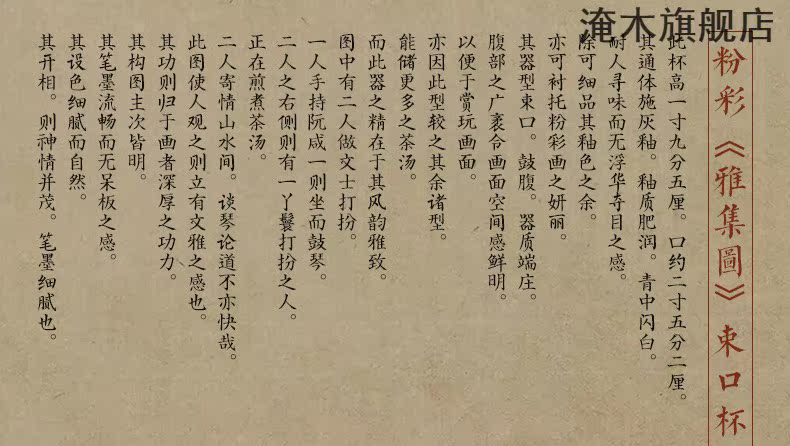 淹木旗舰店
粉彩《雅集圖》束口杯
此杯高一寸九分五厘。口约二寸五分二厘。
其通体施灰釉。釉质肥润。青中闪白。
耐人寻味而无浮华夺目之感。
除可细品其釉色之余。
亦可衬托粉彩画之妍丽。
其器型束口。鼓腹。器质端庄。
腹部之广袤合画面空间感鲜明。
以便于赏玩画面。
亦因此型较之其余诸型。
能储更多之茶汤。
而此器之精在于其风韵雅致。
图中有二人做文士打扮。
一人手持阮咸一则坐而鼓琴。
二人之右侧则有一丫鬟打扮之人。
正在煎煮茶汤。
二人寄情山水间。谈琴论道不亦快哉。
此图使人观之则立有文雅之感也。
其功则归于画者深厚之功力。
其构图主次皆明。
其笔墨流畅而无呆板之感。
其设色细腻而自然。
其开相。则神情并茂。笔墨细腻也。